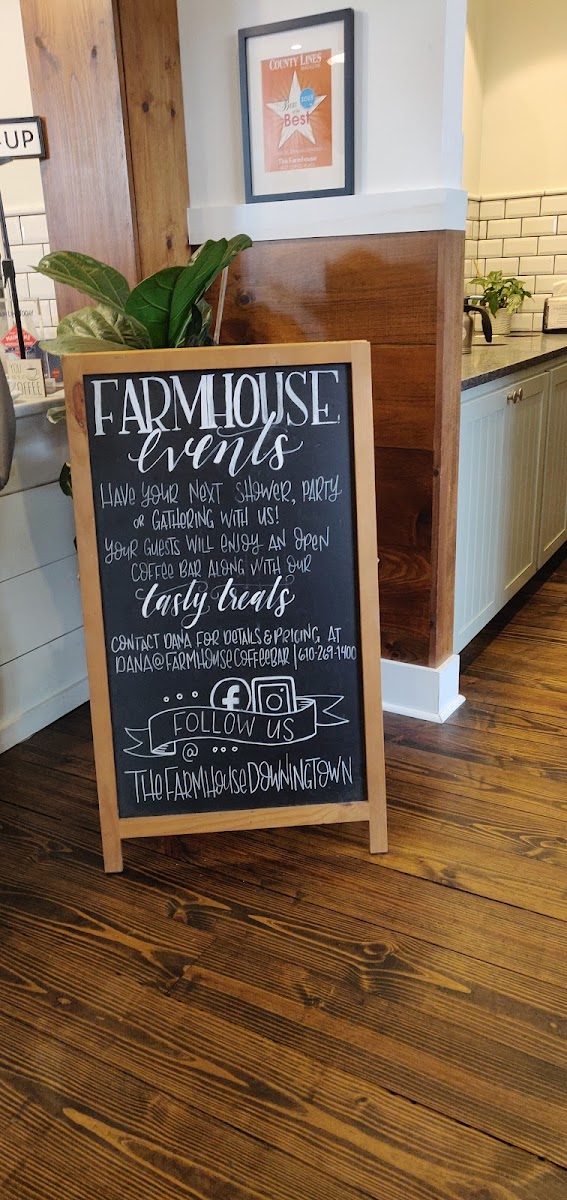 COUNTY LINES
Best
OF THE
Best
The Farmhouse
UP
COFFEE
FARMHOUSE
events
HAVE YOUR NEXT SHOWER, PARTY
OR GATHERING WITH US!
YOUR GUESTS WILL ENJOY AN OPEN
COFFEE BAR ALONG WITH OUR
tasty treats
CONTACT DANA FOR DETAILS & PRICING AT
DANA@FARMHOUSECOFFEEBAR | 610-269-1400
FOLLOW US
@
THEFARMHOUSEDOWNINGTOWN